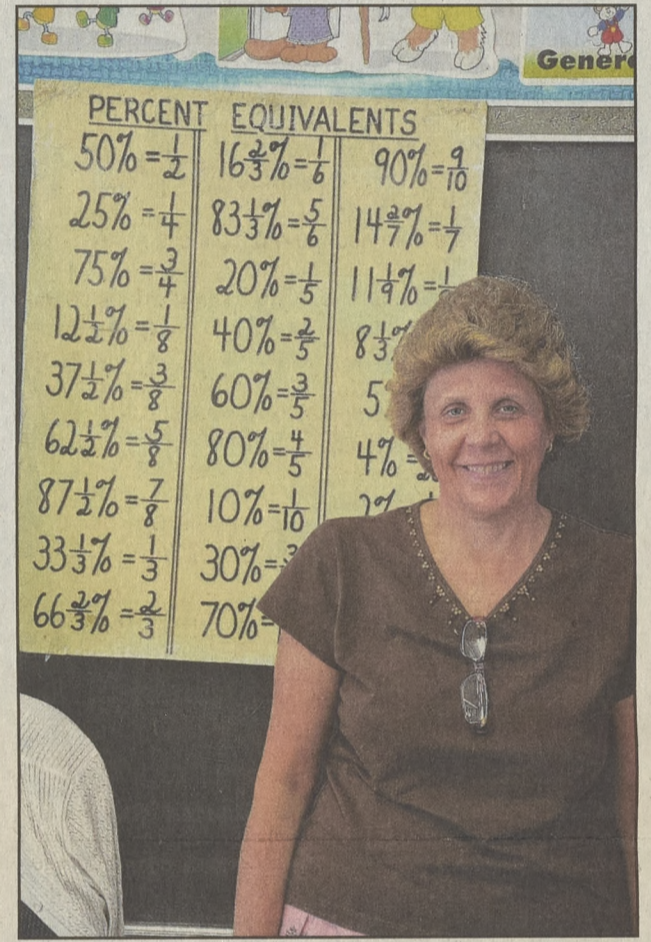 Genera
PERCENT EQUIVALENTS
50% = 1/2
25% = 1/4
75% = 3/4
12 1/2% = 1/8
37 1/2% = 3/8
62 1/2% = 5/8
87 1/2% = 7/8
33 1/3% = 1/3
66 2/3% = 2/3
16 2/3% = 1/6
83 1/3% = 5/6
20% = 1/5
40% = 2/5
60% = 3/5
80% = 4/5
10% = 1/10
30% = 3
70% =
90% = 9/10
14 2/7% = 1/7
11 1/9% = 1
8 1/3%
5
4% =
2%